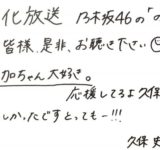 化放送 乃木坂46の「の
皆様、是非、お聴き下さい
加ちゃん大好き。
応援してるよ久保
しかったですとってもー!!!
久保 史